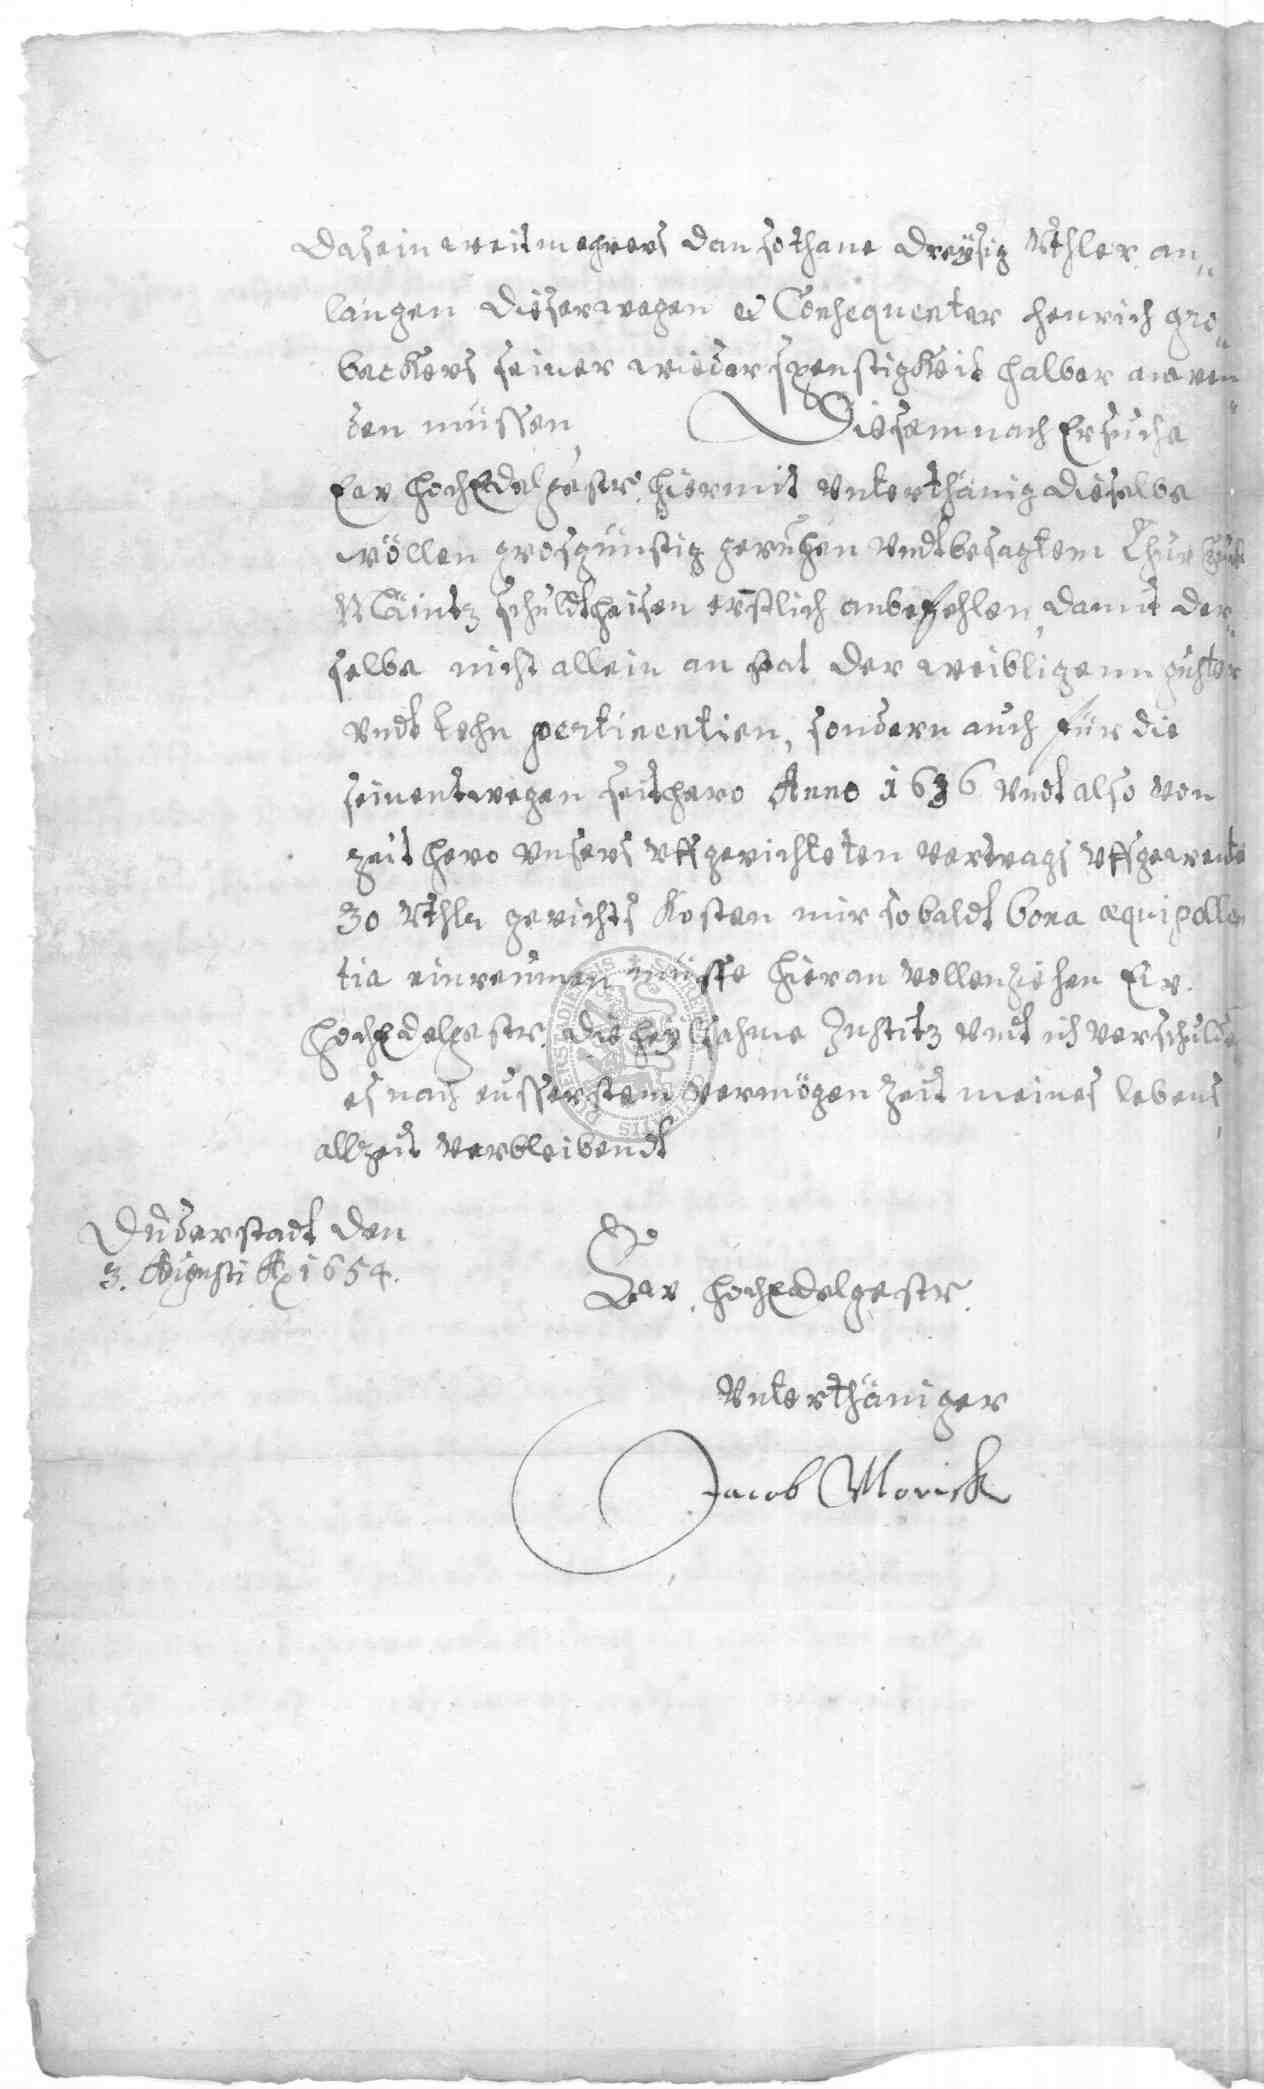 dasein weit mehrers dan sothane dreÿsig Rthler an„
langen dieserwegen et Consequenter henrich gro„
backers seiner wiederspenstigkeit halber anwen„
den müssen Diesem nach Ersuche
Ew. hochEdelgestr. hiermit unterthänig dieselbe
wöllen grosgünstig geruhen undt besagtem Chur
Mäintz schuldtheisen erstlich anbefehlen, damit der„
selbe nicht allein an stat der weibligenn guhter
undt Lehn pertinentien, sondern auch für die
seinentwegen seithero Anno 1636 undt also von
zeit hero unsers uffgerichteten vertrags uffgewente
30 Rthlr gerichts Kosten mir sobaldt bona æquipollen
tia einreumen müsse hieran vollenziehen Ew.
hochEdelgestr. die heÿlsahme Justitz undt ich verschulde
es nach eusserstem vermögen Zeit meines lebens,
allzeit verbleibendt
Duderstadt den
3. Augusti Ao 1654.
Ew. hochEdelgestr.
Unterthäniger
Jacob Morick